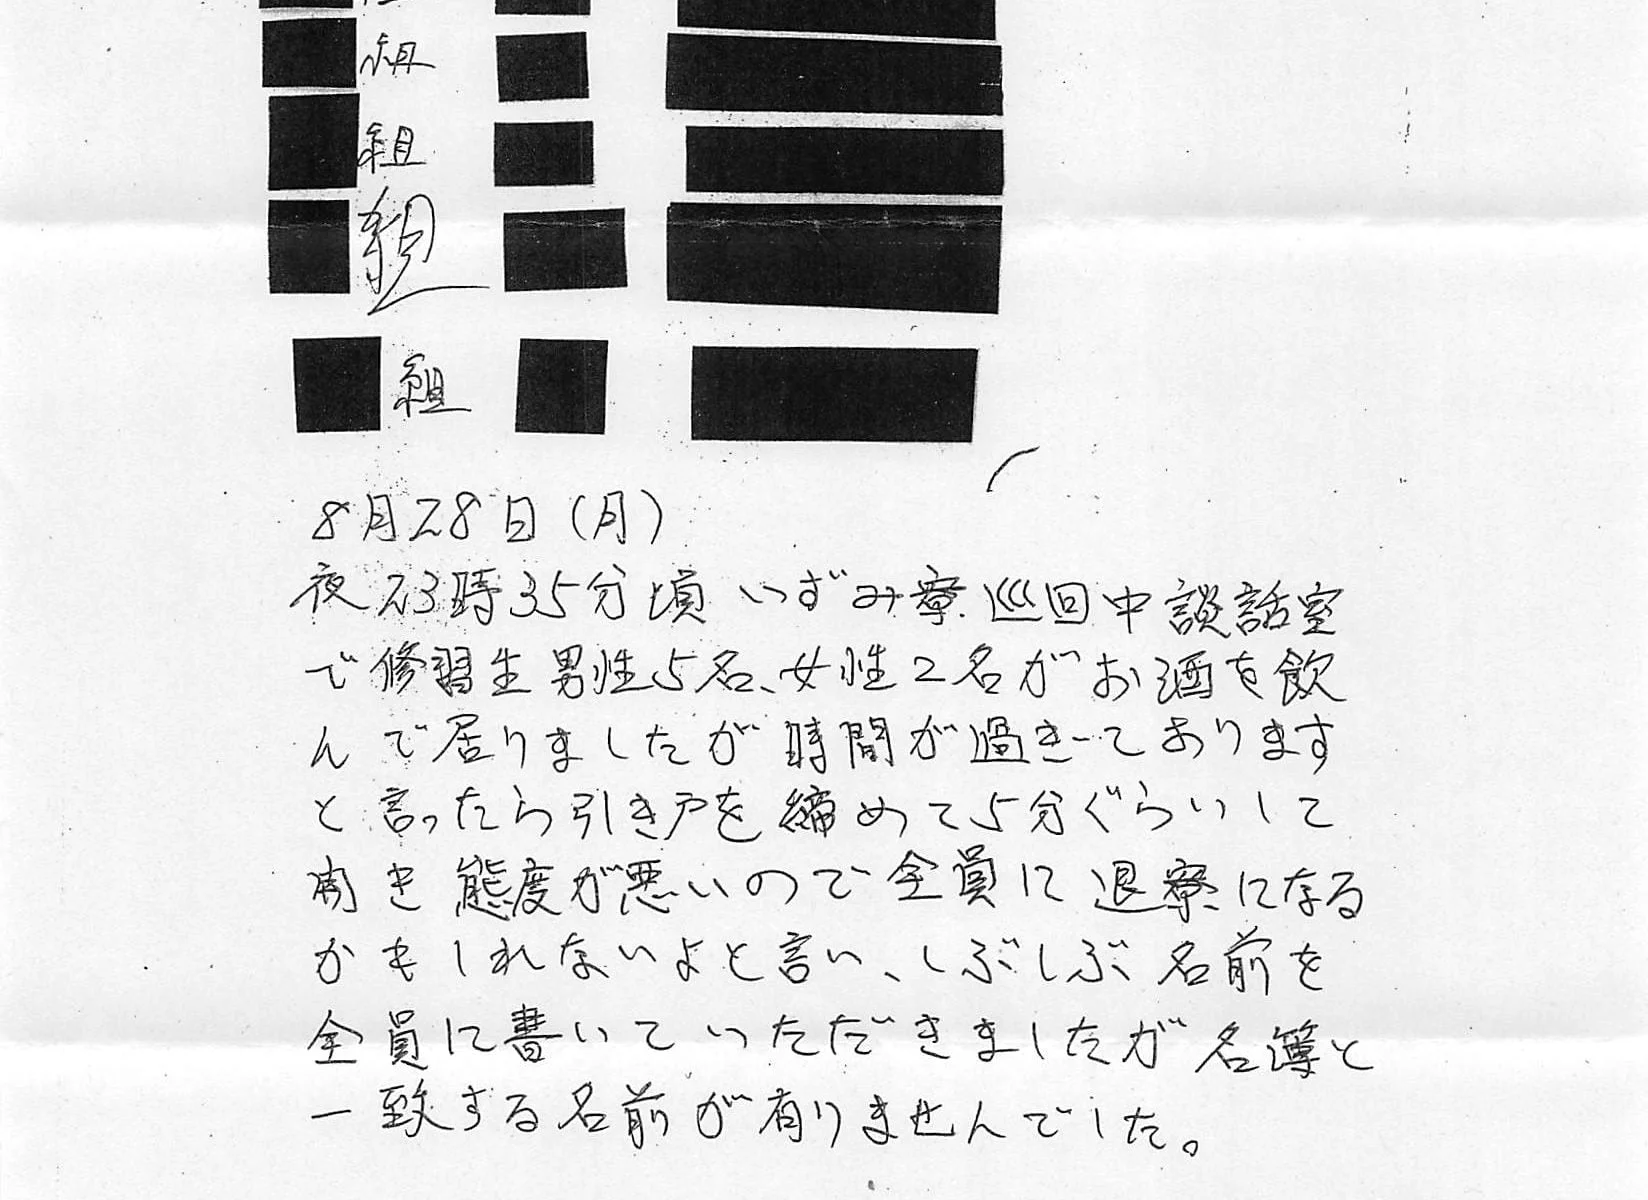 組
組
組
組
8月28日(月)
夜23時35分頃 いずみ寮巡回中談話室
で修習生男性5名、女性2名がお酒を飲
んで居りましたが時間が過ぎておあります
と言ったら引き戸を締めて5分ぐらいして
開き態度が悪いので全員に退寮になる
かもしれないよと言い、しぶしぶ名前を
全員に書いていただきましたが名簿と
一致する名前が有りませんでした。